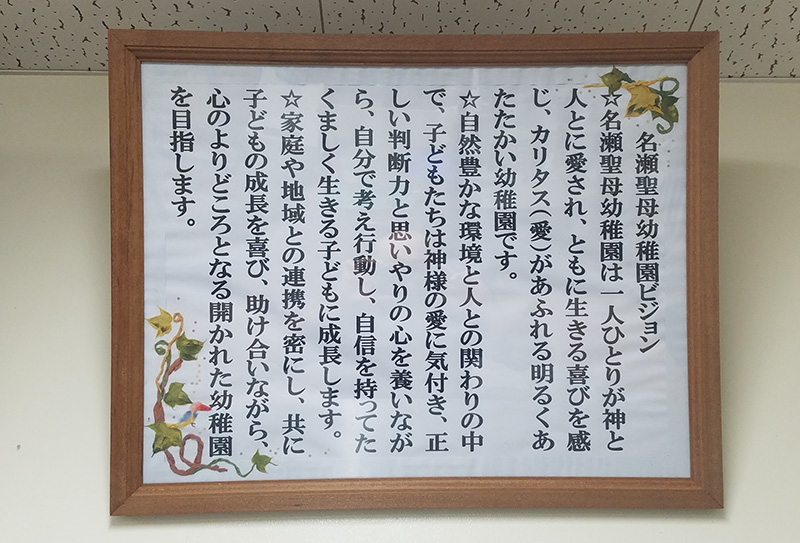 名瀬聖母幼稚園ビジョン
☆名瀬聖母幼稚園は一人ひとりが神と
人とに愛され、ともに生きる喜びを感
じ、カリタス(愛)があふれる明るくあ
たたかい幼稚園です。
☆自然豊かな環境と人との関わりの中
で、子どもたちは神様の愛に気付き、正
しい判断力と思いやりの心を養いなが
ら、自分で考え行動し、自信を持ってた
くましく生きる子どもに成長します。
☆家庭や地域との連携を密にし、共に
子どもの成長を喜び、助け合いながら、
心のよりどころとなる開かれた幼稚園
を目指します。